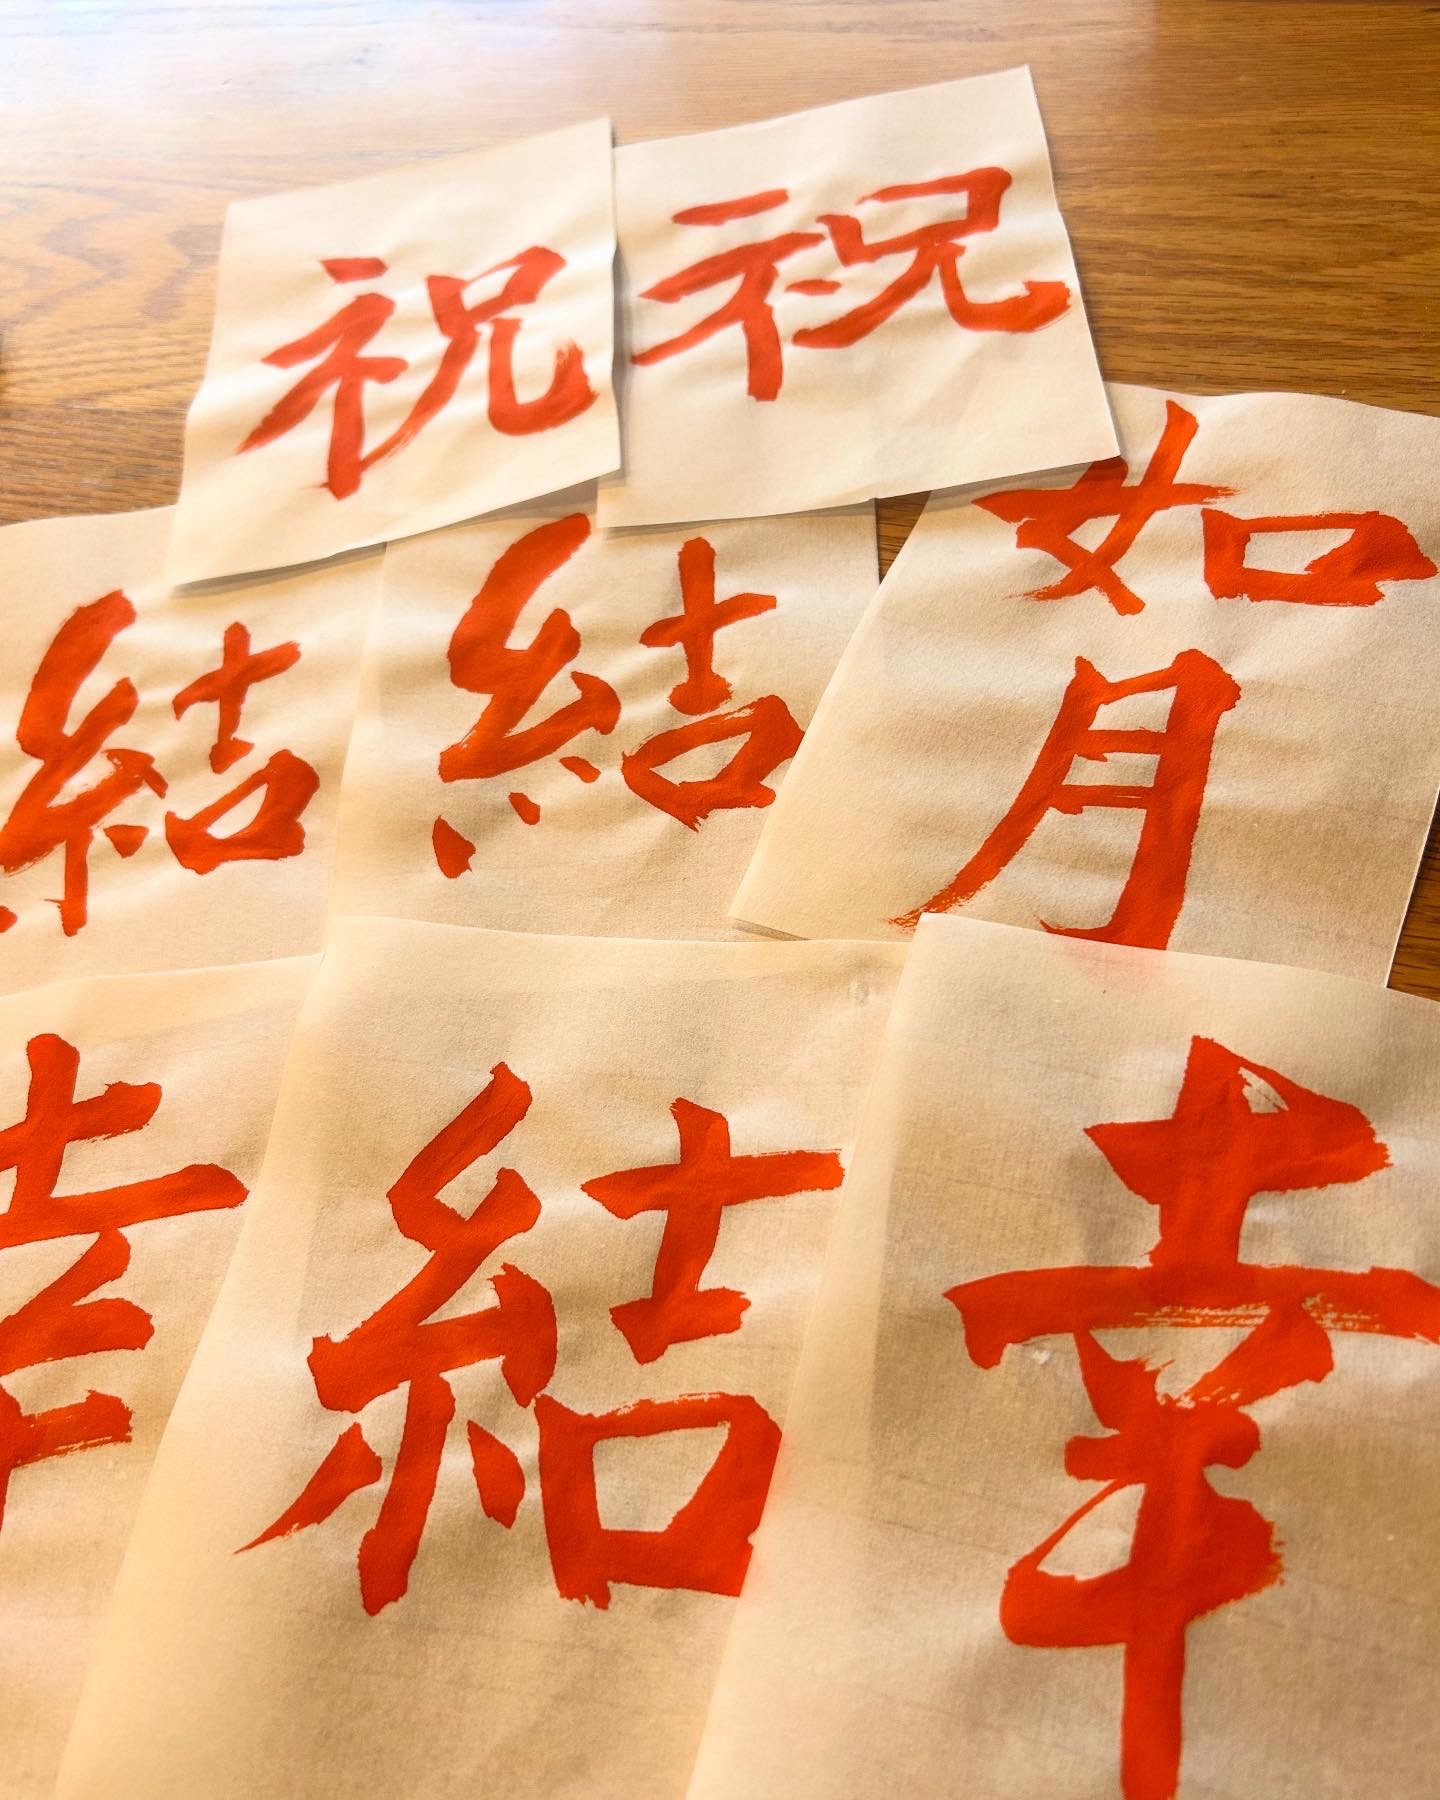 祝
祝
結
結
如
月
幸
結
幸